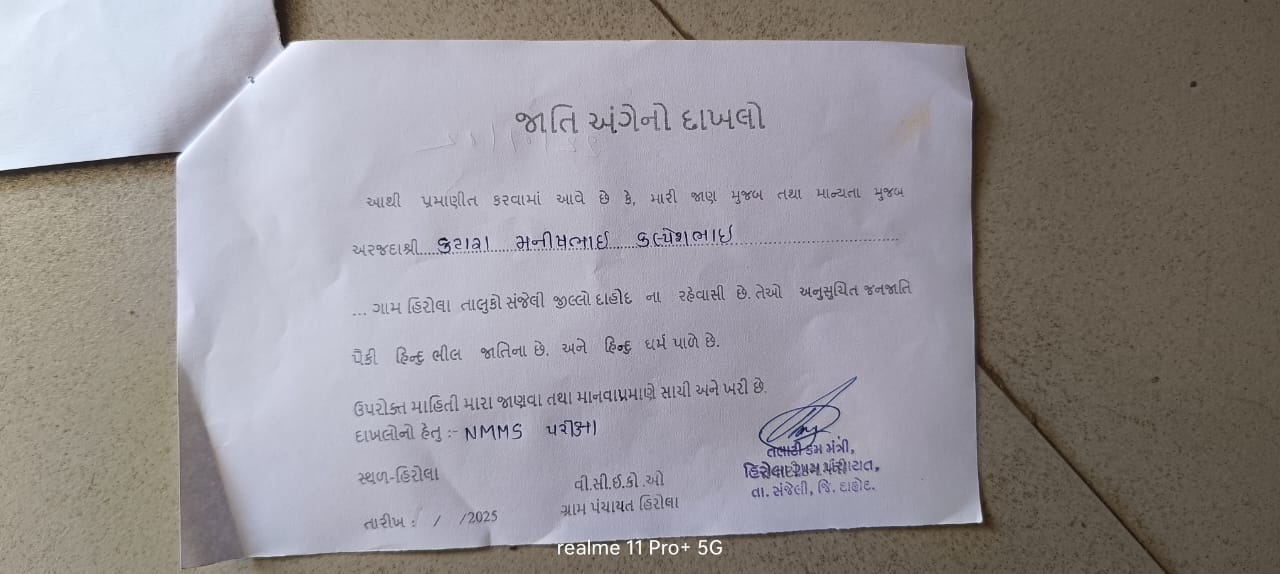 જાતિ અંગેનો દાખલો
આથી પ્રમાણીત કરવામાં આવે છે કે, મારી જાણ મુજબ તથા માન્યતા મુજબ
અરજદાશ્રી કટારા મનીષભાઈ કલ્પેશભાઈ
... ગામ હિરોલા તાલુકો સંજેલી જીલ્લો દાહોદ ના રહેવાસી છે. તેઓ અનુસુચિત જનજાતિ
પૈકી હિન્દુ ભીલ જાતિના છે. અને હિન્દુ ધર્મ પાળે છે.
ઉપરોક્ત માહિતી મારા જાણવા તથા માનવાપ્રમાણે સાચી અને ખરી છે.
દાખલોનો હેતુ :- NMMS પરીક્ષા
સ્થળ-હિરોલા
તારીખ : / /2025
વી.સી.ઈ.કો.ઓ
ગ્રામ પંચાયત હિરોલા
તલાટી કમ મંત્રી,
હિરોલા
તા. સંજેલી, જિ. દાહોદ.
realme 11 Pro+ 5G